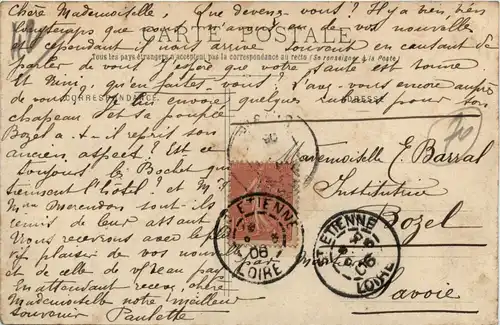 Chère Mademoiselle, Que devenez-vous? Il y a bien bien
longtemps que nous n'avons eu de vos nouvelles
et cependant il nous arrive souvent en causant de
parler de vous. J'espère que votre santé est bonne
et Mimi, qu'en faites-vous? L'avez-vous encore auprès
de vous? envoie quelques pour son
chapeau et sa poupée
Bozel a-t-il repris son
ancien aspect? Est-ce
toujours les Bochet qui
tiennent l'hôtel? et M.
Mme sont-ils
remis de leur
Nous recevrons avec le plus
plaisir de vos nouv
et de celle de
En attendant recevez, chère
Mademoiselle notre meilleur
souvenir Paulette
CARTE POSTALE
Tous les pays étrangers n'acceptent pas la correspondance au recto (Se renseigner à la Poste)
CORRESPONDANCE
ADRESSE
Mademoiselle E. Barral
Institutrice
Bozel
par
Savoie
ST ETIENNE
06
LOIRE
ST ETIENNE
06
LOIRE